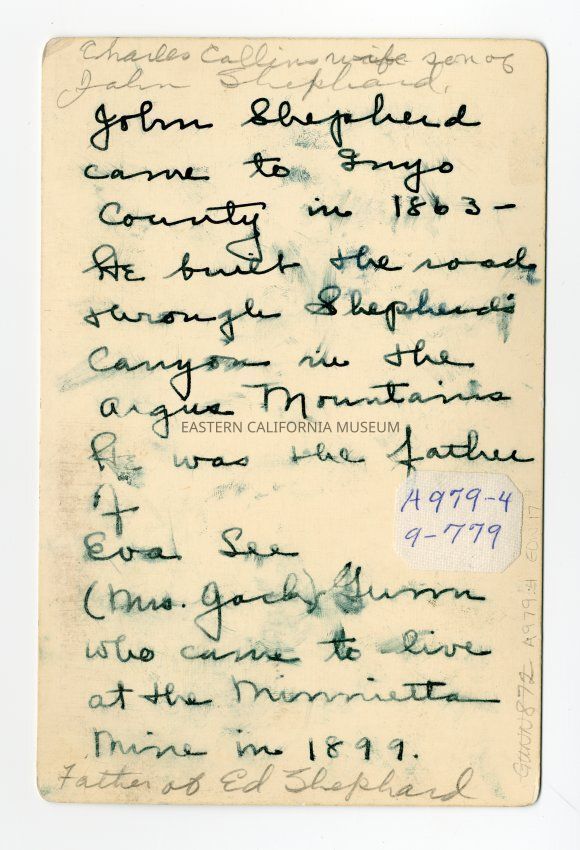 Charles Collins wife son of
John Shephard.
John Shepherd
came to Inyo
County in 1863 -
He built the road
through Shepherd's
Canyon in the
Argus Mountains
EASTERN CALIFORNIA MUSEUM
He was the father
of
A979-4
9-779
Eva Lee
(Mrs. Jack) Gunn
who came to live
at the Minnietta
Mine in 1899.
Father of Ed Shephard
GUNN 872 A979.4